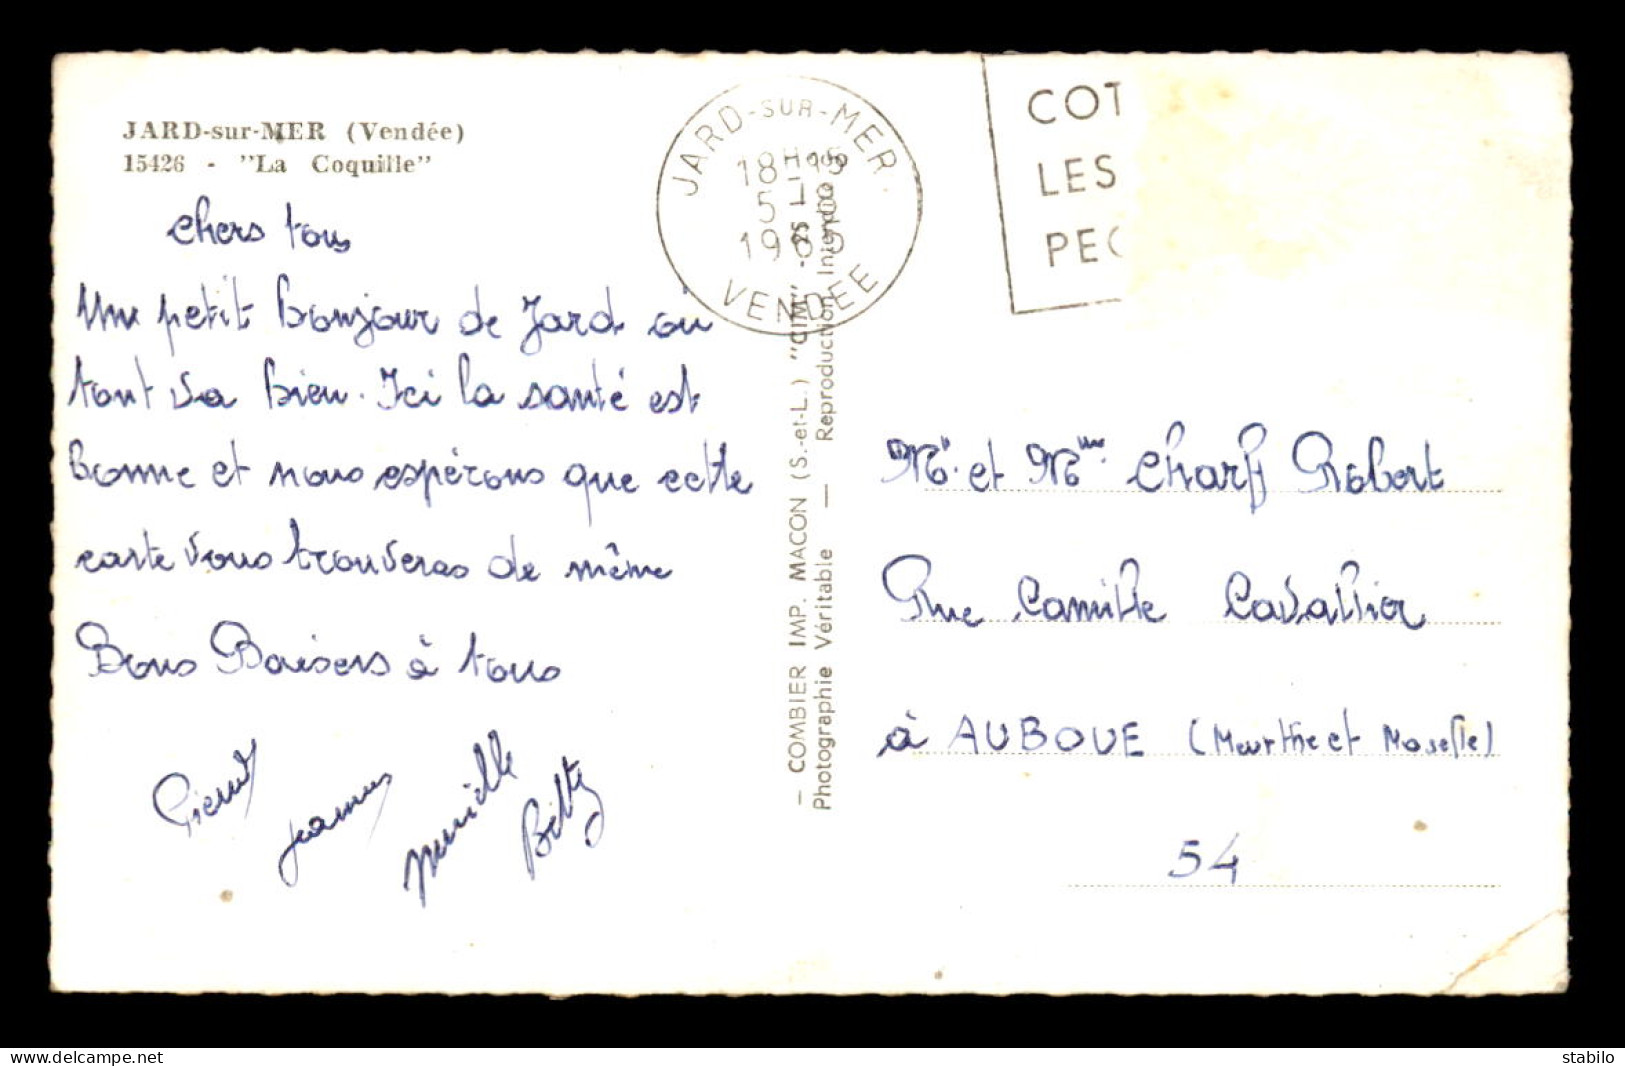 JARD-sur-MER (Vendée)
15426 - "La Coquille"
chers tous
Un petit bonjour de Jard où
tout va bien. Ici la santé est
bonne et nous espérons que cette
carte vous trouveras de même
Bons Baisers à tous
Pierrot
murielle
JARD-SUR-MER
18H15
1965
VENDÉE
COT
LES
PEC
— COMBIER IMP. MACON (S.-et-L.) "CIM" -
Photographie Véritable — Reproduction Interdite
Mr. et Mme. Charff Robert
Rue Camille Cavallier
à AUBOUE (Meurthe et Moselle)
54
delcampe.net
stabilo